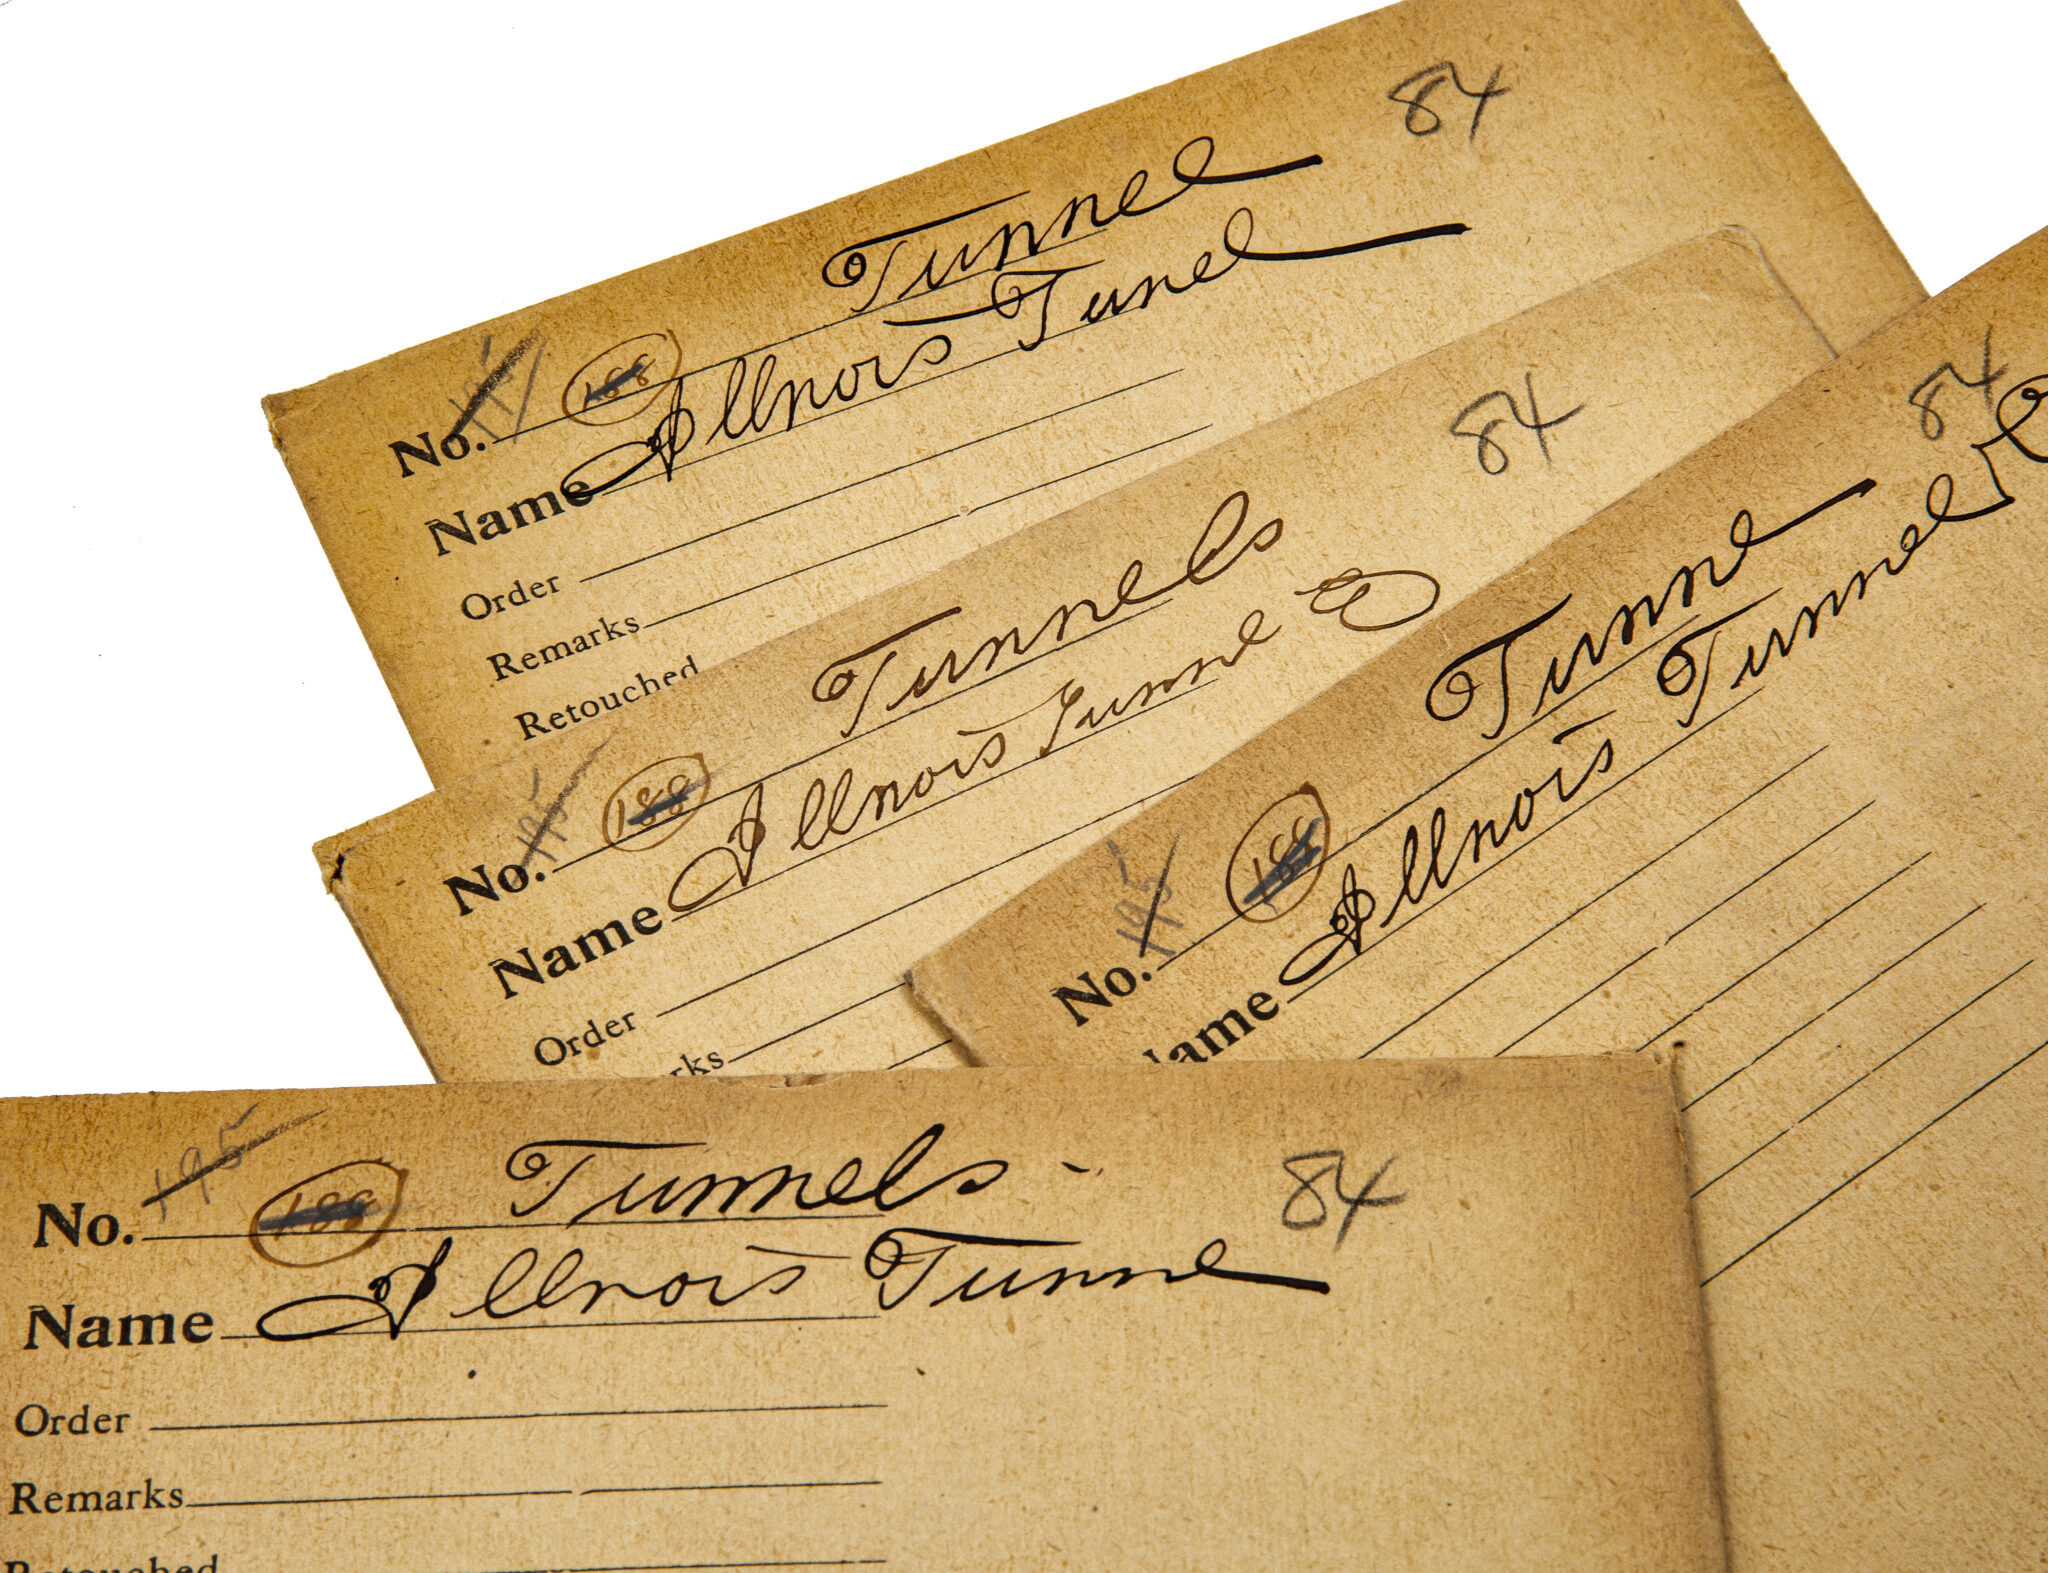 84
Tunnel
No. 195 188
Name Illnois Tunel
Order
Remarks
Retouched
84
Tunnels
No. 195 188
Name Illnois Tunne
Order
rks
84
Tunne
No. 195 188
ame Illnois Tunnel
195 Tunnels - 84
No. 188
Name Illnois Tunne
Order
Remarks
Retouched